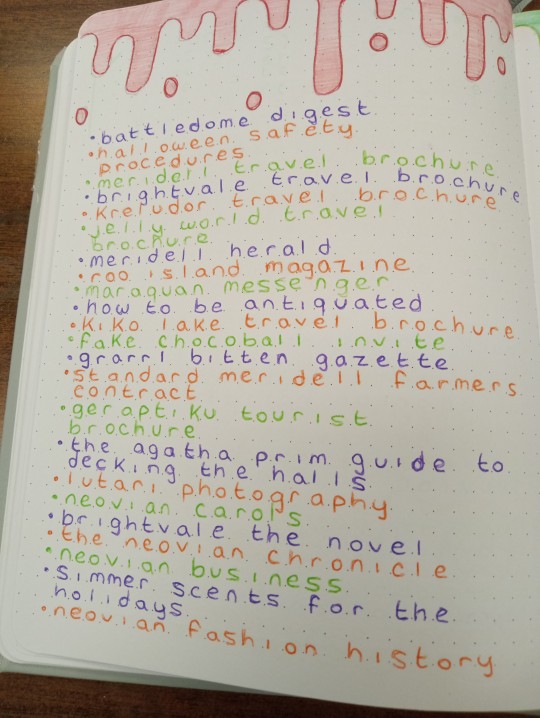 • battledome digest
• halloween safety
procedures
• meridell travel brochure
• brightvale travel brochure
• Kreludor travel brochure
• jelly world travel
brochure
• meridell herald
• roo island magazine
• maraquan messenger
• how to be antiquated
• Kiko lake travel brochure
• fake chocoball invite
• grarrl bitten gazette
• standard meridell farmers
contract
• geraptiku tourist
brochure
• the agatha prim guide to
decking the halls
• lutari photography
• neovian carols
• brightvale the novel
• the neovian chronicle
• neovian business
• simmer scents for the
holidays
• neovian fashion history